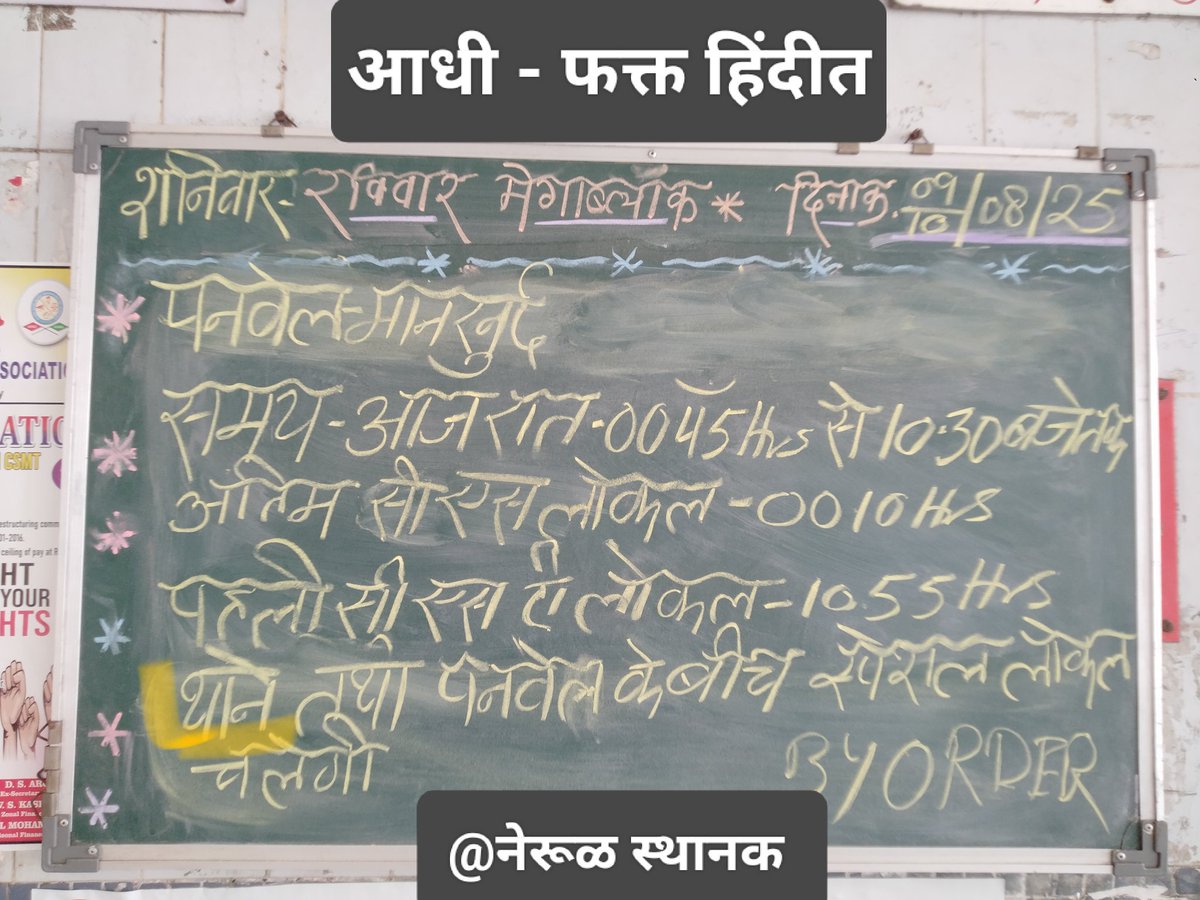 आधी - फक्त हिंदीत
शनिवार- रविवार मेगाब्लॉक * दिनाक. 09/10/08/25
पनवेल-मानखुर्द
समय - आज रात - 0045 Hrs से 10:30 बजे तक
अंतिम सीएस लोकल - 0010 Hrs
पहली सीएसटी लोकल - 10.55 Hrs
थाने तथा पनवेल के बीच स्पेशल लोकल
चलेगी
BY ORDER
@नेरूळ स्थानक
SOCIATIO
ATIO
CSMT
estructuring comm
01-2016.
ceiling of pay at R
HT
YOUR
HTS
D. S. AR
Ex-Secretar
V. S. KAS
Zonal Fina
L MOHAN